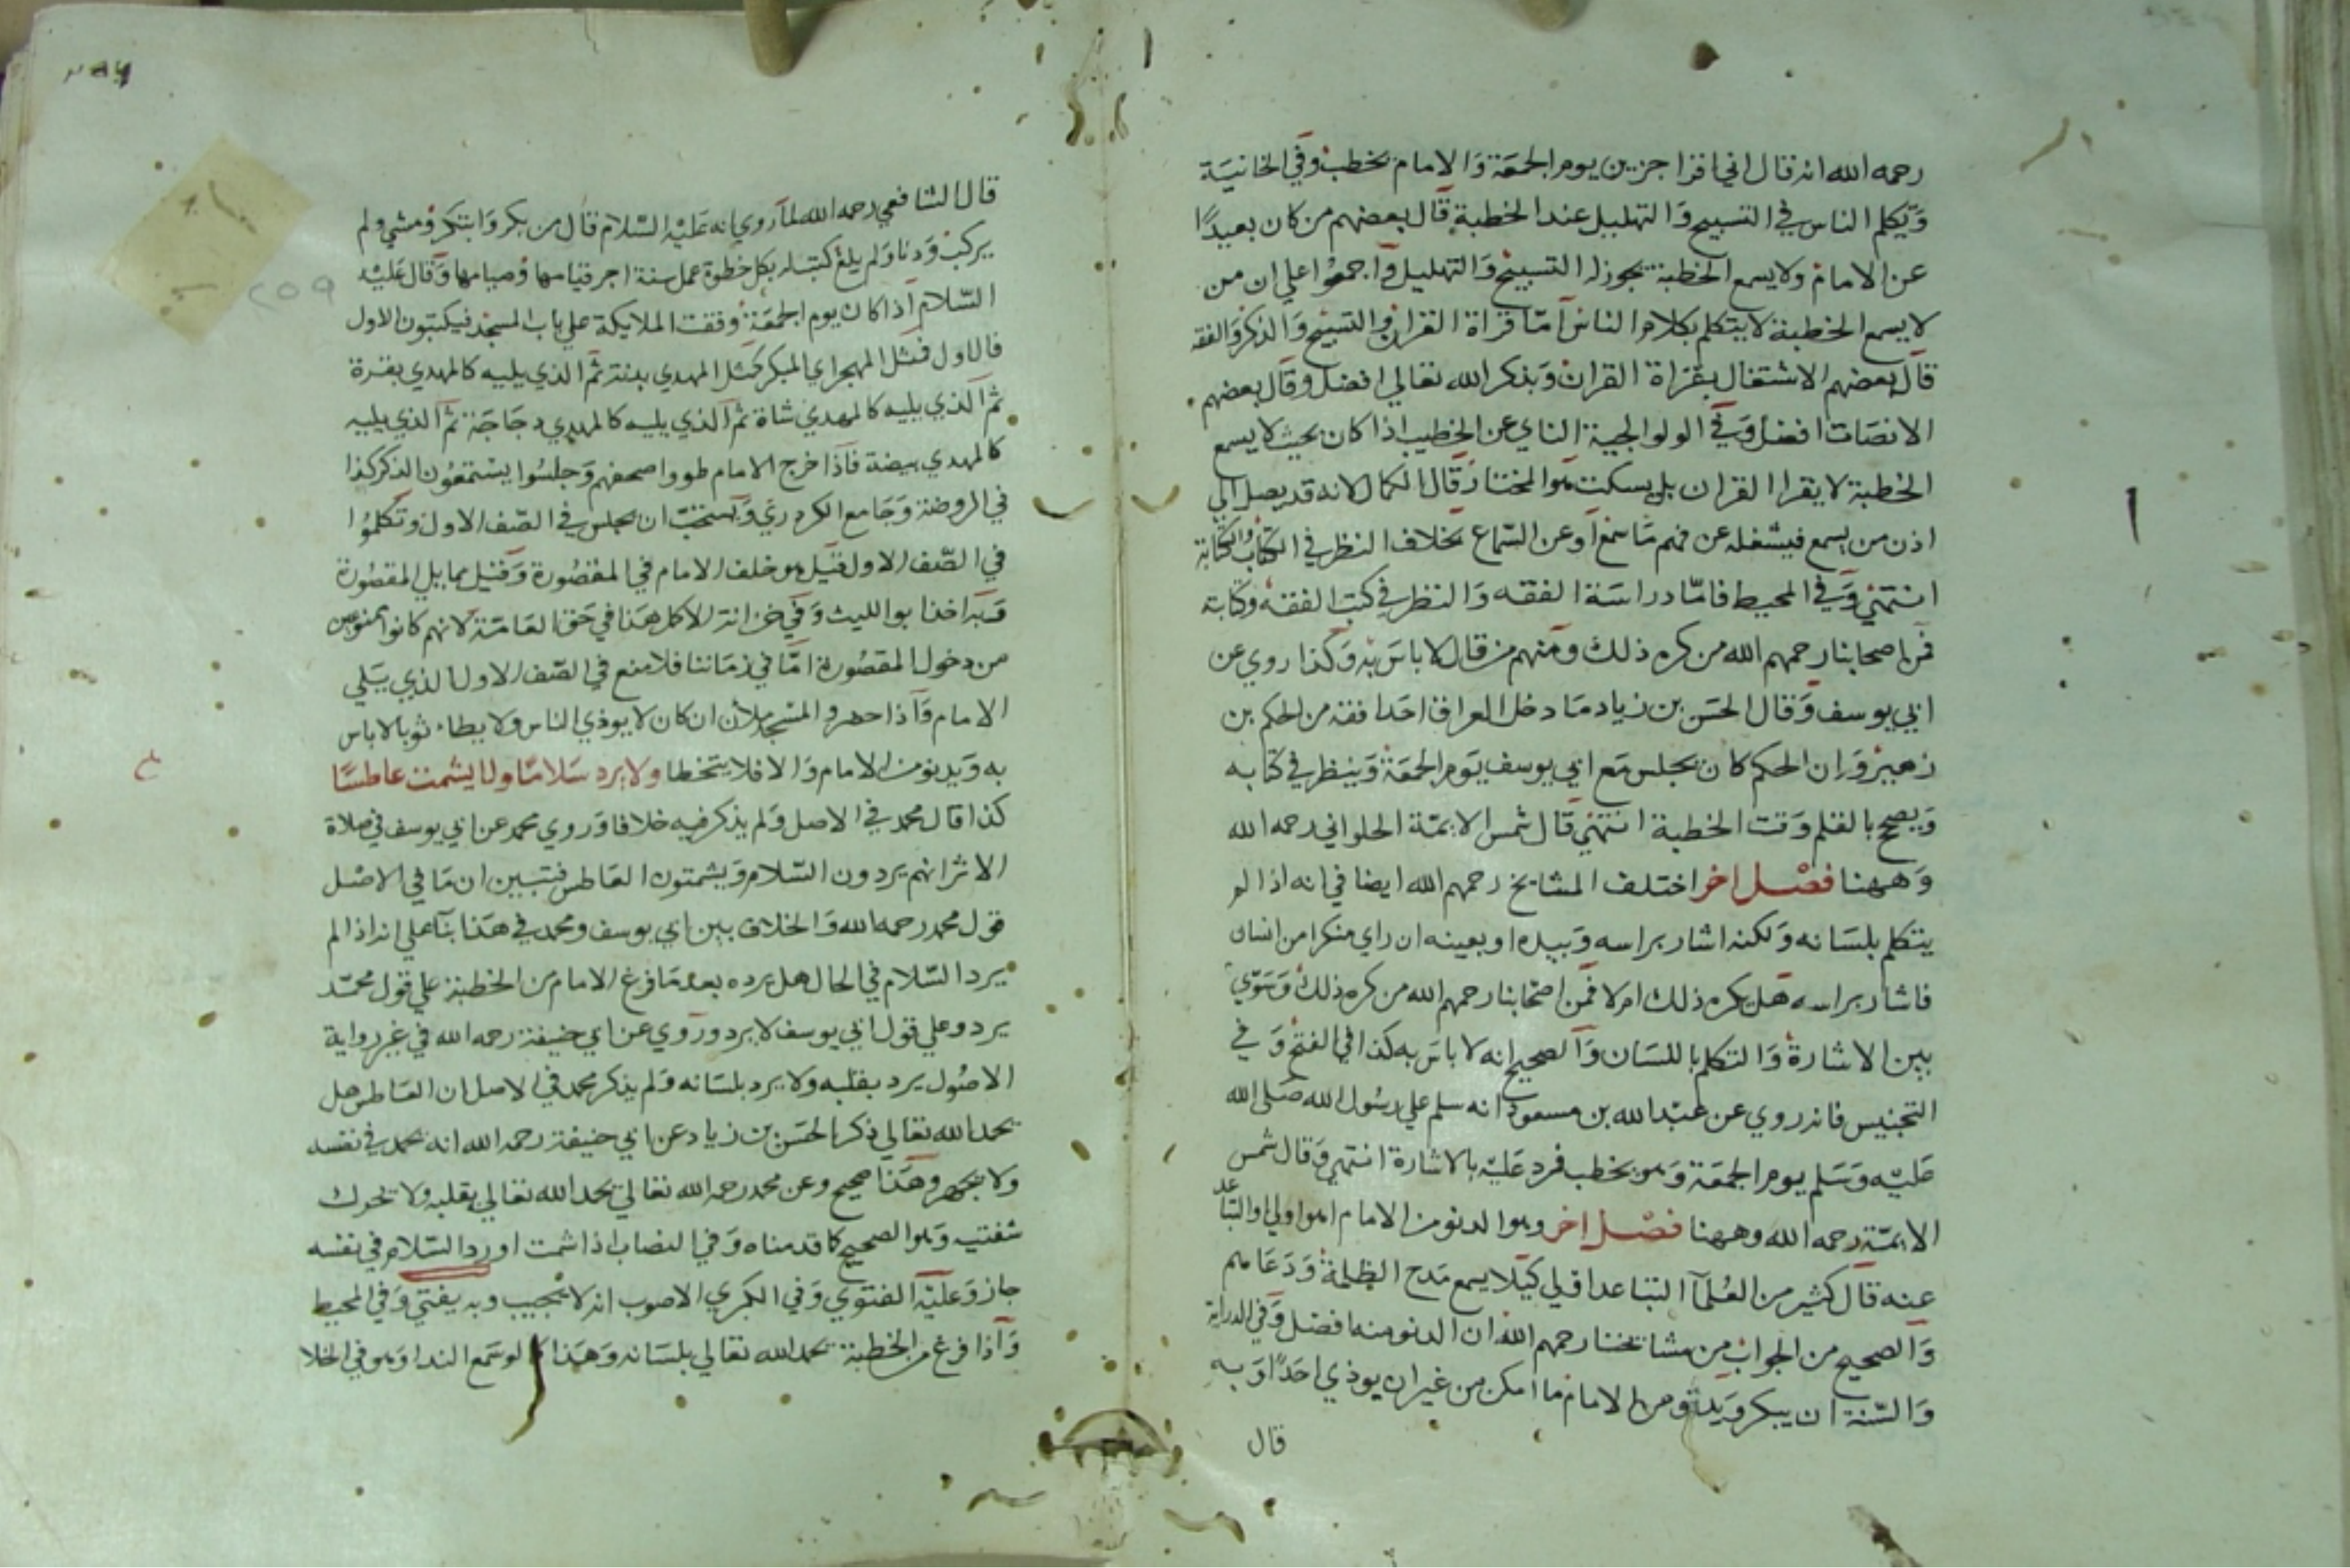 رحمه الله انه قال اني اقرا جزين يوم الجمعة والامام يخطب وفي الخانية
وتكلم الناس في التسبيح والتهليل عند الخطبة قال بعضهم من كان بعيدا
عن الامام ولا يسمع الخطبة يجوز له التسبيح والتهليل واجمعوا علي ان من
لا يسمع الخطبة لا يتكلم بكلام الناس اما قراة القران والتسبيح والذكر والفقه
قال بعضهم الاشتغال بقراة القران وبذكر الله تعالي افضل وقال بعضهم
الانصات افضل وفي الولوالجية الناي عن الخطيب اذا كان بحيث لا يسمع
الخطبة لا يقرا القران بل يسكت هو المختار قال الكمال لانه قد يصل الي
اذن من يسمع فيشغله عن فهم ما سمع او عن السماع بخلاف النظر في الكتاب والكتابة
انتهي وفي المحيط فاما دراسة الفقه والنظر في كتب الفقه وكتابته
فمن اصحابنا رحمهم الله من كره ذلك ومنهم من قال لا باس به وكذا روي عن
ابي يوسف وقال الحسن بن زياد ما دخل العراق احد افقه من الحكم بن
زهير وان الحكم كان يجلس مع ابي يوسف يوم الجمعة وينظر في كتابه
ويصحح بالقلم وقت الخطبة انتهي قال شمس الايمة الحلواني رحمه الله
وههنا فصل اخر اختلف المشايخ رحمهم الله ايضا في انه اذا لم
يتكلم بلسانه ولكنه اشار براسه وبيده او بعينه ان راي منكرا من انسان
فاشار براسه هل يكره ذلك ام لا فمن اصحابنا رحمهم الله من كره ذلك وسوي
بين الاشارة والتكلم باللسان والصحيح انه لا باس به كذا في الفتح وفي
التجنيس فانه روي عن عبد الله بن مسعود انه سلم علي رسول الله صلى الله
عليه وسلم يوم الجمعة وهو يخطب فرد عليه بالاشارة انتهي وقال شمس
الايمة رحمه الله وههنا فصل اخر وهو الدنو من الامام اهو اولي او التباعد
عنه قال كثير من العلما التباعد اولي كيلا يسمع مدح الظلمة ودعاهم
والصحيح من الجواب من مشايخنا رحمهم الله ان الدنو منه افضل وفي الدراية
والسنة ان يبكر ويدنو من الامام ما امكن من غير ان يوذي احدا وبه
قال
٢٥٩
قال الشافعي رحمه الله لما روي انه عليه السلام قال من بكر وابتكر ومشي ولم
يركب ودنا ولم يلغ كتب له بكل خطوة عمل سنة اجر قيامها وصيامها وقال عليه
السلام اذا كان يوم الجمعة وقفت الملايكة علي باب المسجد فيكتبون الاول
فالاول فمثل المهجر اي المبكر كمثل المهدي بدنة ثم الذي يليه كالمهدي بقرة
ثم الذي يليه كالمهدي شاة ثم الذي يليه كالمهدي دجاجة ثم الذي يليه
كالمهدي بيضة فاذا خرج الامام طووا صحفهم وجلسوا يستمعون الذكر كذا
في الروضة وجامع الكردري ويستحب ان يجلس في الصف الاول وتكلموا
في الصف الاول قيل هو خلف الامام في المقصورة وقيل ما يلي المقصورة
وبه اخذ ابو الليث وفي خزانة الاكمل هذا في حق العامة لانهم كانوا ممنوعين
من دخول المقصورة اما في زماننا فلا منع في الصف الاول الذي يلي
الامام واذا حضر والمسجد ملان ان كان لا يوذي الناس ولا يطاء ثوبا لا باس
به ويدنو من الامام والا فلا يتخطا ولا يرد سلاما ولا يشمت عاطسا
كذا قال محمد في الاصل ولم يذكر فيه خلافا وروي محمد عن ابي يوسف في صلاة
الاثر انهم يردون السلام ويشمتون العاطس فتبين ان ما في الاصل
قول محمد رحمه الله والخلاف بين ابي يوسف ومحمد في هذا بنا علي انه اذا لم
يرد السلام في الحال هل يرده بعد ما فرغ الامام من الخطبة علي قول محمد
يرد وعلي قول ابي يوسف لا يرد وروي عن ابي حنيفة رحمه الله في غير رواية
الاصول يرد بقلبه ولا يرد بلسانه ولم يذكر محمد في الاصل ان العاطس هل
يحمد الله تعالي ذكر الحسن بن زياد عن ابي حنيفة رحمه الله انه يحمد في نفسه
ولا يجهر وهذا صحيح وعن محمد رحمه الله تعالي يحمد الله تعالي بقلبه ولا يحرك
شفتيه وهو الصحيح كما قدمناه وفي النصاب اذا شمت او رد السلام في نفسه
جاز وعليه الفتوي وفي الكبري الاصوب انه لا يجيب وبه يفتي وفي المحيط
واذا فرغ من الخطبة يحمد الله تعالي بلسانه وهذا لو سمع الندا وهو في الخلا